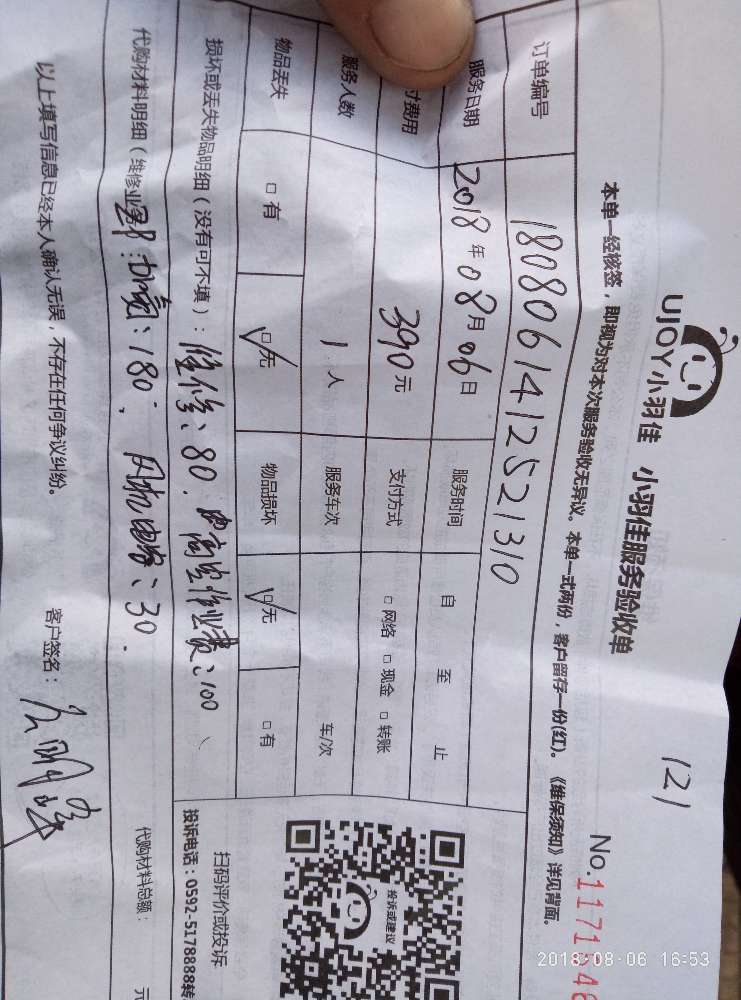 121
UJOY小羽佳 小羽佳服务验收单
No.1171546
本单一经核签，即视为对本次服务验收无异议。本单一式两份，客户留存一份(红)。《维保须知》详见背面。
订单编号 1808061412521310
服务日期 2018年08月06日 服务时间 自 至 止
付费用 390元 支付方式 □网络 □现金 □转账
服务人数 1人 服务车次 车/次
物品丢失 □有 ☑无 物品损坏 ☑无 □有
损坏或丢失物品明细（没有可不填）：维修：80、高空作业费：100、
代购材料明细（维修业 加氟：180、风机电容：30.
代购材料总额： 元
以上填写信息已经本人确认无误，不存在任何争议纠纷。 客户签名：
投诉或建议
扫码评价或投诉
投诉电话：0592-5178888转
2018-08-06 16:53